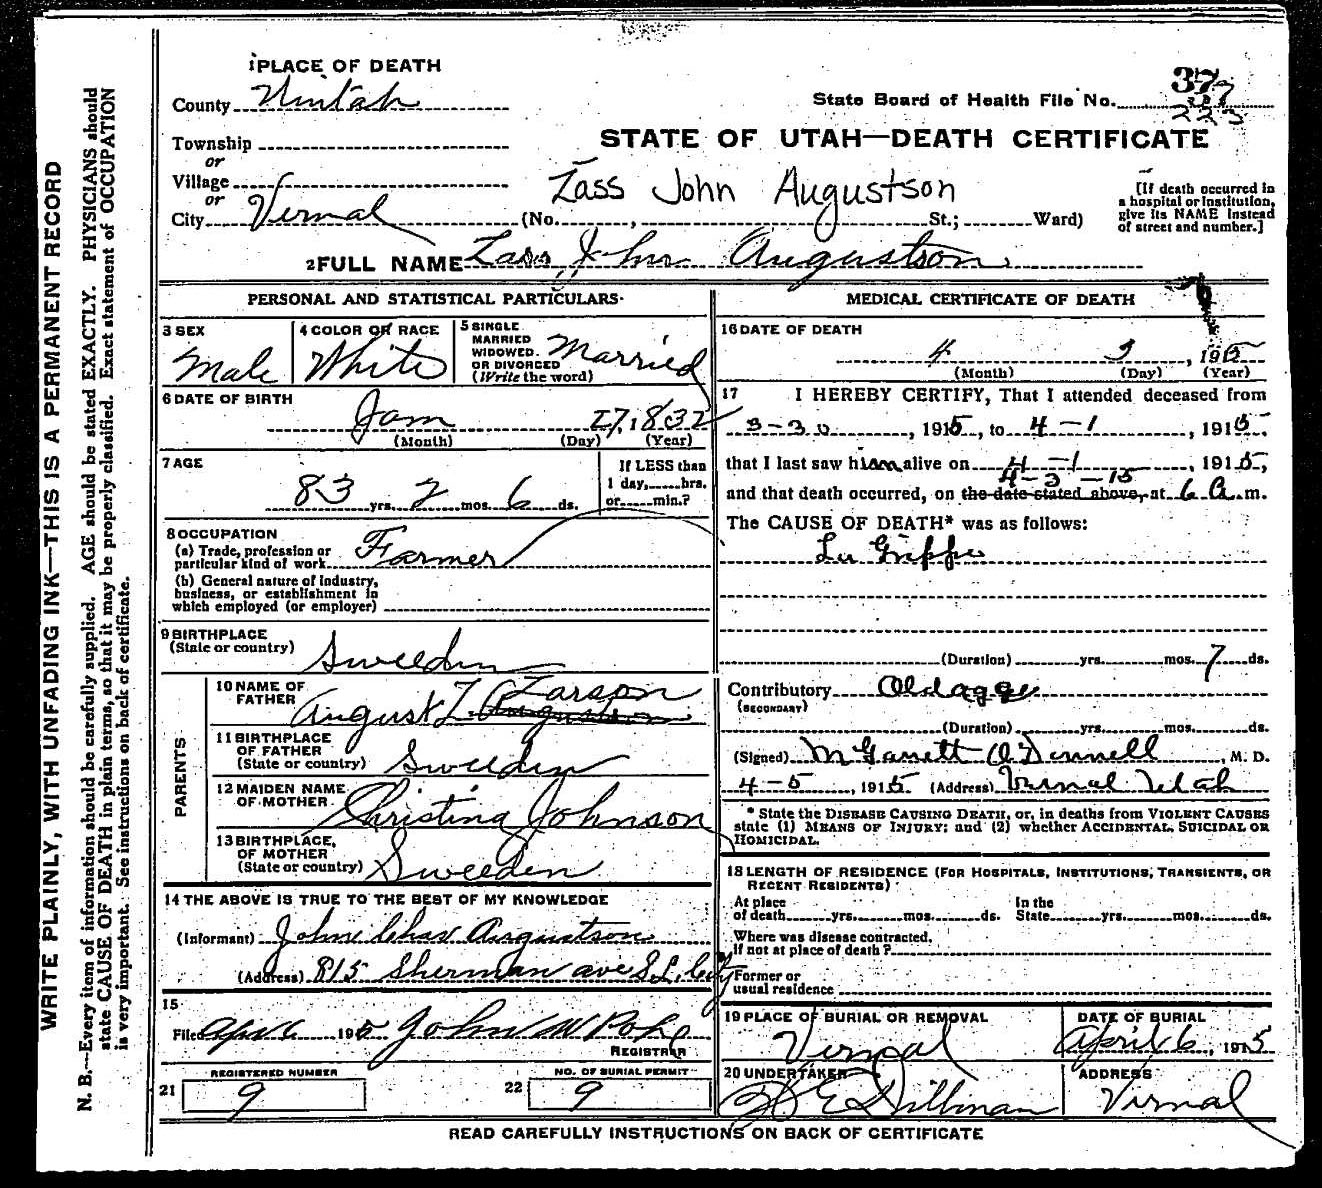 WRITE PLAINLY, WITH UNFADING INK—THIS IS A PERMANENT RECORD
N. B.—Every item of information should be carefully supplied. AGE should be stated EXACTLY. PHYSICIANS should
state CAUSE OF DEATH in plain terms, so that it may be properly classified. Exact statement of OCCUPATION
is very important. See instructions on back of certificate.
1 PLACE OF DEATH
County Uintah
State Board of Health File No. 37
223
Township
or
Village
or
City Vernal
STATE OF UTAH—DEATH CERTIFICATE
Lass John Augustson
(No. , St.; Ward)
[If death occurred in
a hospital or institution,
give its NAME instead
of street and number.]
2 FULL NAME Lass John Augustson
PERSONAL AND STATISTICAL PARTICULARS
3 SEX
Male
4 COLOR OR RACE
White
5 SINGLE
MARRIED
WIDOWED
OR DIVORCED
(Write the word)
Married
6 DATE OF BIRTH
Jan 27, 1832
(Month) (Day) (Year)
7 AGE
83 yrs. 2 mos. 6 ds.
If LESS than
1 day, hrs.
or min.?
8 OCCUPATION
(a) Trade, profession or
particular kind of work Farmer
(b) General nature of industry,
business, or establishment in
which employed (or employer)
9 BIRTHPLACE
(State or country) Sweeden
PARENTS
10 NAME OF
FATHER August L. Augustson Larson
11 BIRTHPLACE
OF FATHER
(State or country) Sweeden
12 MAIDEN NAME
OF MOTHER Christina Johnson
13 BIRTHPLACE,
OF MOTHER
(State or country) Sweeden
14 THE ABOVE IS TRUE TO THE BEST OF MY KNOWLEDGE
(Informant) John Chas Augustson
(Address) 815 Sherman ave S.L. City
15
Filed Apr 6 1915 John W Pope
REGISTRAR
21 REGISTERED NUMBER
9
22 NO. OF BURIAL PERMIT
9
MEDICAL CERTIFICATE OF DEATH
16 DATE OF DEATH
4 3, 1915
(Month) (Day) (Year)
17 I HEREBY CERTIFY, That I attended deceased from
3-30, 1915, to 4-1, 1915,
that I last saw him alive on 4-1, 1915,
4-3-15
and that death occurred, on the date stated above, at 6 A. m.
The CAUSE OF DEATH* was as follows:
La Grippe
(Duration) yrs. mos. 7 ds.
Contributory Old agge
(SECONDARY)
(Duration) yrs. mos. ds.
(Signed) M Garrett O'Donnell, M. D.
4-5, 1915 (Address) Vernal Utah
* State the DISEASE CAUSING DEATH, or, in deaths from VIOLENT CAUSES
state (1) MEANS OF INJURY; and (2) whether ACCIDENTAL, SUICIDAL OR
HOMICIDAL.
18 LENGTH OF RESIDENCE (FOR HOSPITALS, INSTITUTIONS, TRANSIENTS, OR
RECENT RESIDENTS)
At place
of death yrs. mos. ds.
In the
State yrs. mos. ds.
Where was disease contracted,
if not at place of death?
Former or
usual residence
19 PLACE OF BURIAL OR REMOVAL
Vernal
DATE OF BURIAL
April 6, 1915
20 UNDERTAKER
Dillman
ADDRESS
Vernal
READ CAREFULLY INSTRUCTIONS ON BACK OF CERTIFICATE